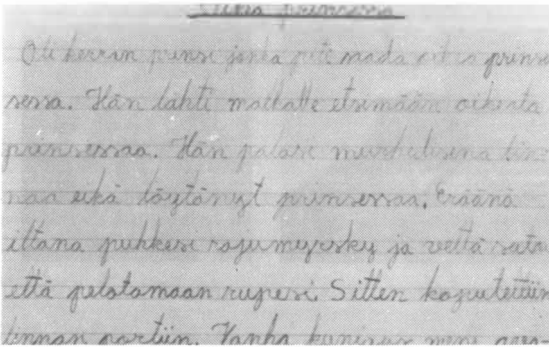 Oikea prinsessa
Oli kerran prinsi jonka piti saada oikia prin
sessa. Hän lähti matkalle etsimään oikeata
prinsessaa. Hän palasi murheilisena lin
naa eikä löytänyt prinsessaa. Eräänä
iltana puhkesi rajumyrsky ja vettä satoi
että pelotamaan rupesi. Sitten koputettiin
linnan portiin. Vanha kuningas meni avaa-